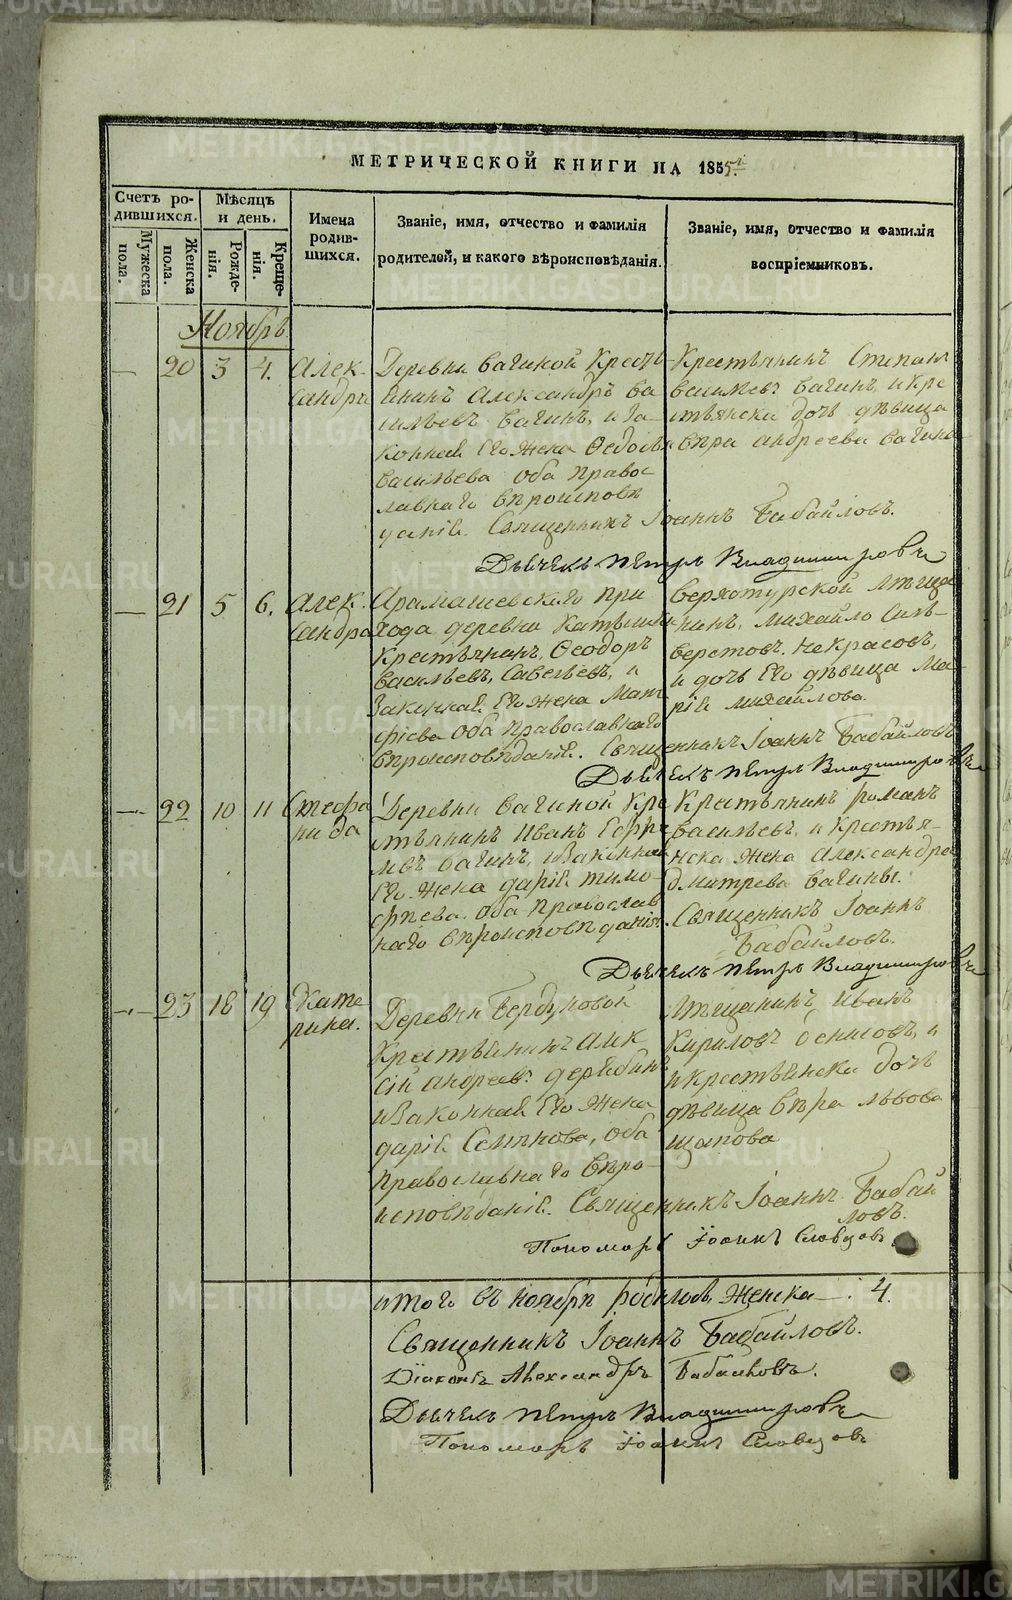 МЕТРИЧЕСКОЙ КНИГИ НА 1855й.
Счетъ ро-
дившихся.
Мужеска
пола.
Женска
пола.
Мѣсяцъ
и день.
Рожде-
нія.
Креще-
нія.
Имена
родив-
шихся.
Званіе, имя, отчество и фамилія
родителей, и какого вѣроисповѣданія.
Званіе, имя, отчество и фамилія
воспріемниковъ.
Ноябрь
— 20 3 4. Алек-
сандра
Деревни Вагиной Кресть-
янинъ Александръ Ва
сильевъ Вагинъ, и за
конная Его Жена Ѳедосья
Васильева оба Правос
лавнаго Вѣроисповѣ
данія.
Крестьянинъ Степанъ
Васильевъ Вагинъ, и кре
стьянска дочь дѣвица
Вѣра Андреева Вагина
Священникъ Іоаннъ Бабайловъ.
Дьячекъ Петръ Владимировъ
— 21 5 6. Алек-
сандра
Арамашевскаго при
хода деревни
Крестьянинъ Ѳеодоръ
Васильевъ, Савельевъ, и
Законная Его Жена Мат
фіева оба Православнаго
вѣроисповѣданія.
Верхотурской мѣща
нинъ, Михайло Силь-
верстовъ Некрасовъ,
и дочь Его дѣвица Ма-
рія Михайлова.
Священникъ Іоаннъ Бабайловъ
Дьячекъ Петръ Владимировъ
— 22 10 11 Стефа
нида
Деревни Вагиной Кре
стьянинъ Иванъ Ефри
мовъ Вагинъ, и Законная
Его Жена Дарія Тимо-
фѣева Оба Православ
наго вѣроисповѣданія.
Крестьянинъ Романъ
Васильевъ, и Крестья-
нска Жена Александра
Дмитрева Вагины.
Священникъ Іоаннъ
Бабайловъ.
Дьячекъ Петръ Владимировъ
— 23 18 19 Екате
рина.
Деревни Бердуловой
Крестьянинъ Алек
сій Андреевъ Дерябинъ
и Законная Его Жена
Дарія Семенова, Оба
Православнаго Вѣро-
исповѣданія.
Мѣщанинъ, Иванъ
Кириловъ Денисовъ, и
и Крестьянска дочь
дѣвица Вѣра Львова
Щапова
Священникъ Іоаннъ Бабай
ловъ.
Пономарь Іоаннъ Словцовъ
Итого въ Ноябрѣ родилось Женска — 4.
Священникъ Іоаннъ Бабайловъ.
Діаконъ Александръ Бабайловъ.
Дьячекъ Петръ Владимировъ
Пономарь Іоаннъ Словцовъ
METRIKI.GASO-URAL.RU